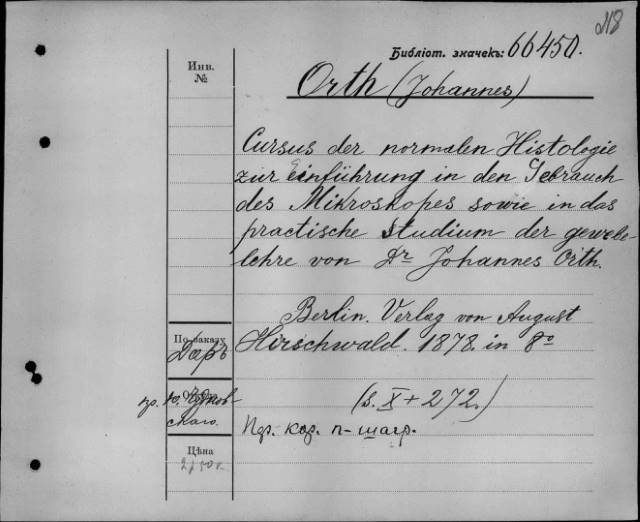 218
Библіот. значекъ: 66450.
Инв.
№
Orth (Johannes)
Cursus der normalen Histologie
zur Einführung in den Gebrauch
des Mikroskopes sowie in das
practische Studium der gewebe-
lehre von Dr Johannes Orth.
Berlin. Verlag von August
Hirschwald. 1878. in 8º
По заказу
Даръ
(s. X + 272.)
скаго.
Пер. кор. п-шагр.
Цѣна